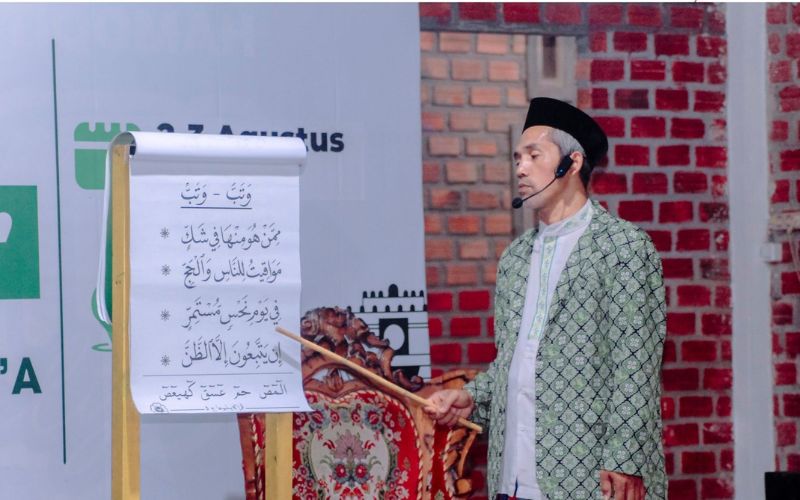 2-7 Agustus
'A
وَتَبَّ - وَتَبُّ
مِمَّنْ هُوَ مِنْهَا فِيْ شَكٍّ
مَوَاقِيْتُ لِلنَّاسِ وَالْحَجِّ
فِيْ يَوْمِ نَحْسٍ مُسْتَمِرٍّ
إِنْ يَتَّبِعُوْنَ إِلَّا الظَّنَّ
الٓمٓصٓ حمٓ عٓسٓقٓ كٓهيعٓصٓ